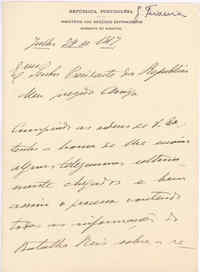 J. Teixeira
REPÚBLICA PORTUGUESA
MINISTÉRIO DOS NEGÓCIOS ESTRANGEIROS
GABINETE DO MINISTRO
Julho 28 de 1917
Exmo Senhor Presidente da Republica
Meu presado Amigo
Cumprindo as ordens de V. Ex.
tenho a honra de lhe enviar
alguns telegramas ultima-
mente chegados e bem
assim o processo contendo
todas as informações do
Batalha Reis sobre a re-